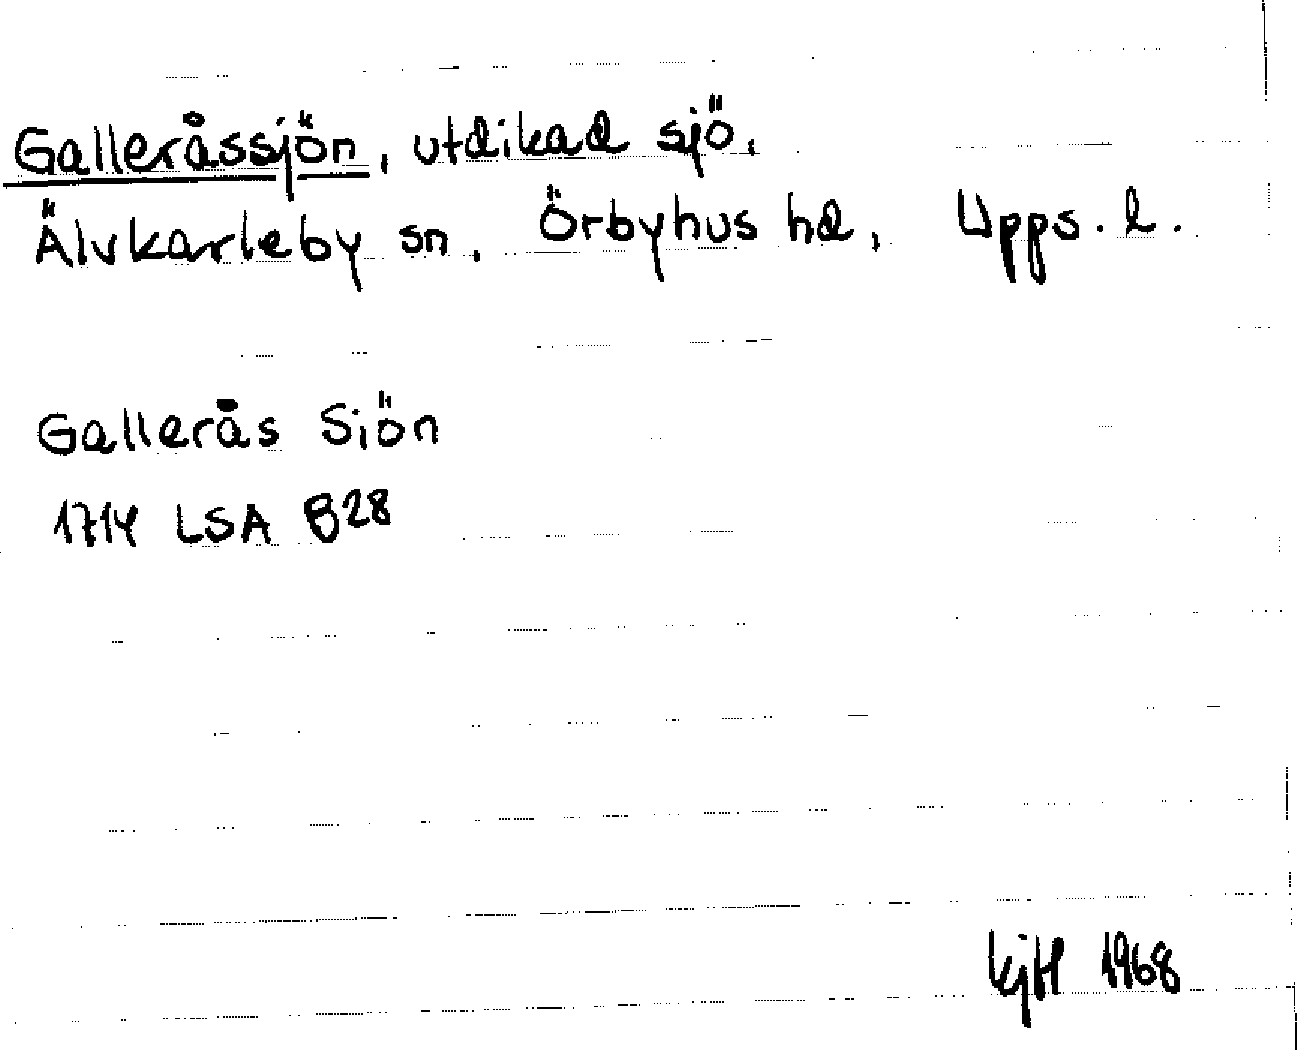 Galleråssjön, utdikad sjö.
Älvkarleby sn. Örbyhus hd, Upps. l.
Gallerås Siön
1714 LSA B28
KjH 1968